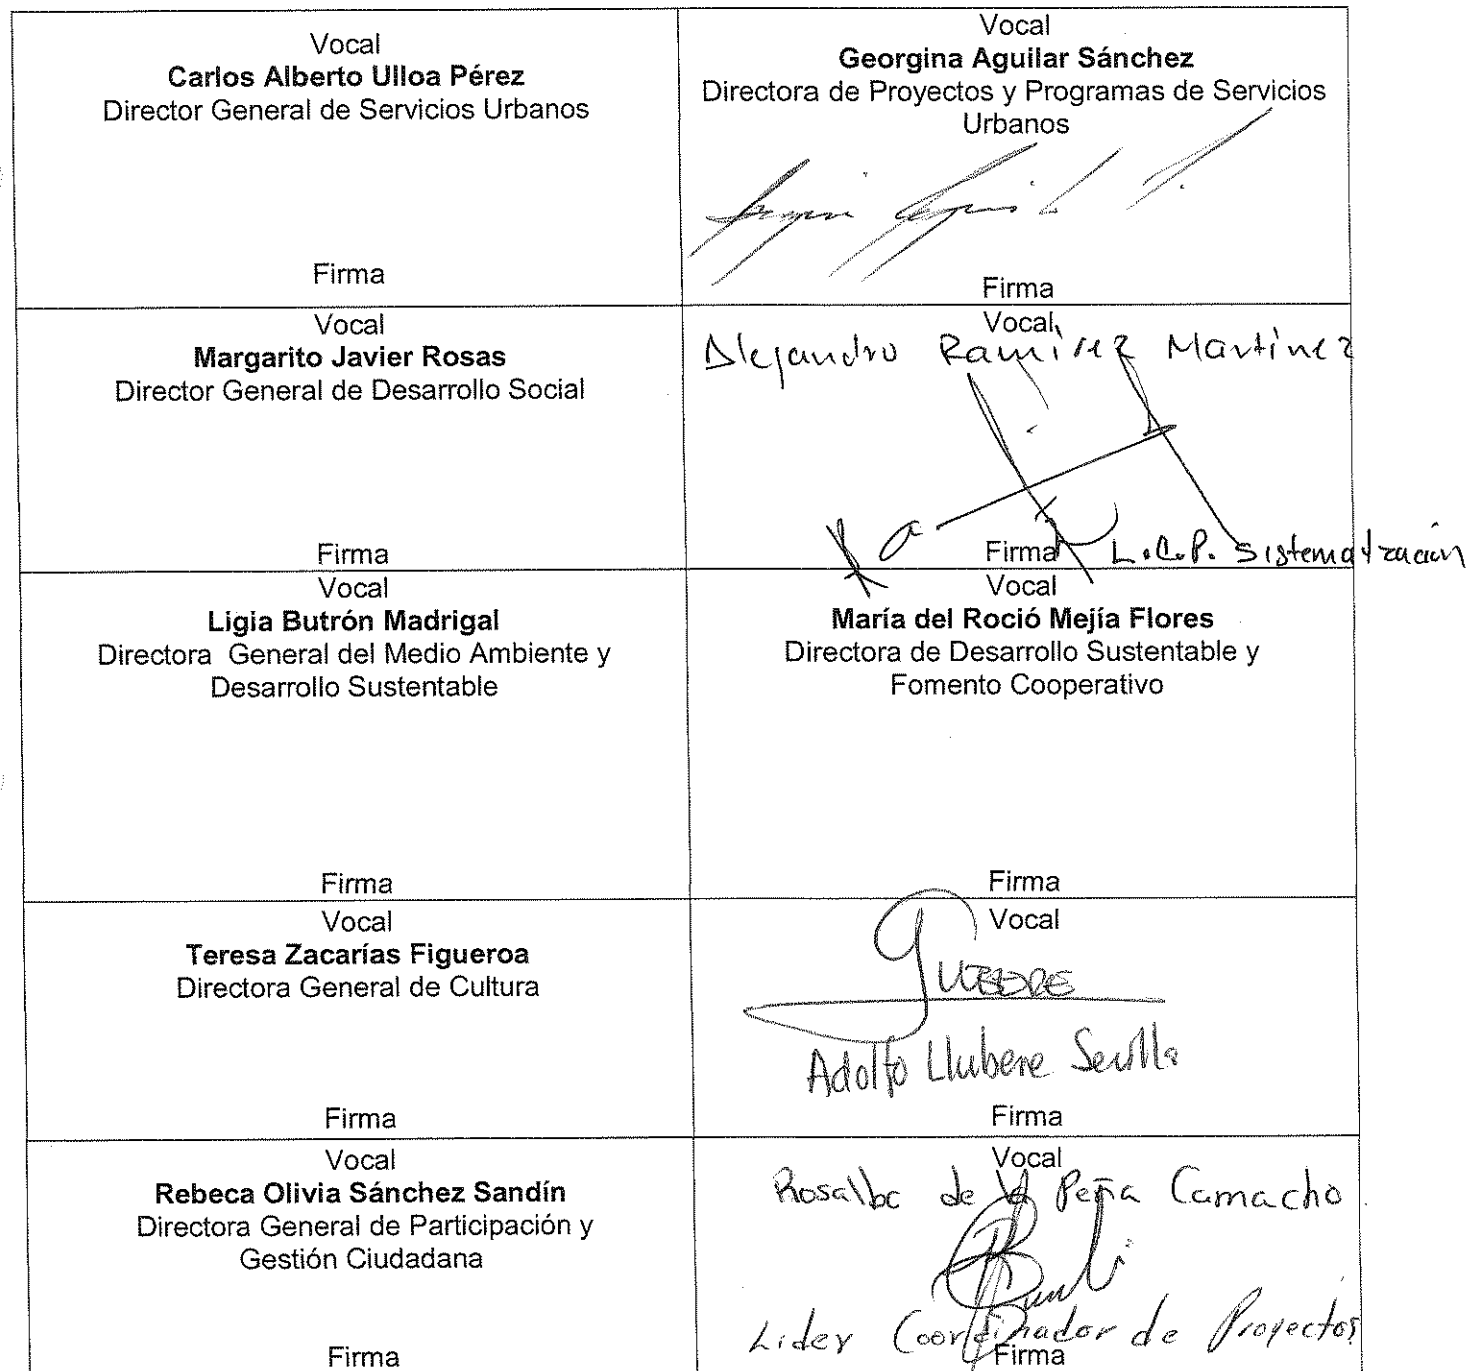 Vocal
Carlos Alberto Ulloa Pérez
Director General de Servicios Urbanos
Firma
Vocal
Georgina Aguilar Sánchez
Directora de Proyectos y Programas de Servicios
Urbanos
Firma
Vocal
Margarito Javier Rosas
Director General de Desarrollo Social
Firma
Vocal
Alejandro Ramírez Martínez
Firma L.C.P. Sistematización
Vocal
Ligia Butrón Madrigal
Directora General del Medio Ambiente y
Desarrollo Sustentable
Firma
Vocal
María del Roció Mejía Flores
Directora de Desarrollo Sustentable y
Fomento Cooperativo
Firma
Vocal
Teresa Zacarías Figueroa
Directora General de Cultura
Firma
Vocal
Adolfo Llubere Sevilla
Firma
Vocal
Rebeca Olivia Sánchez Sandín
Directora General de Participación y
Gestión Ciudadana
Firma
Vocal
Rosalba de la Peña Camacho
Lider Coordinador de Proyectos
Firma